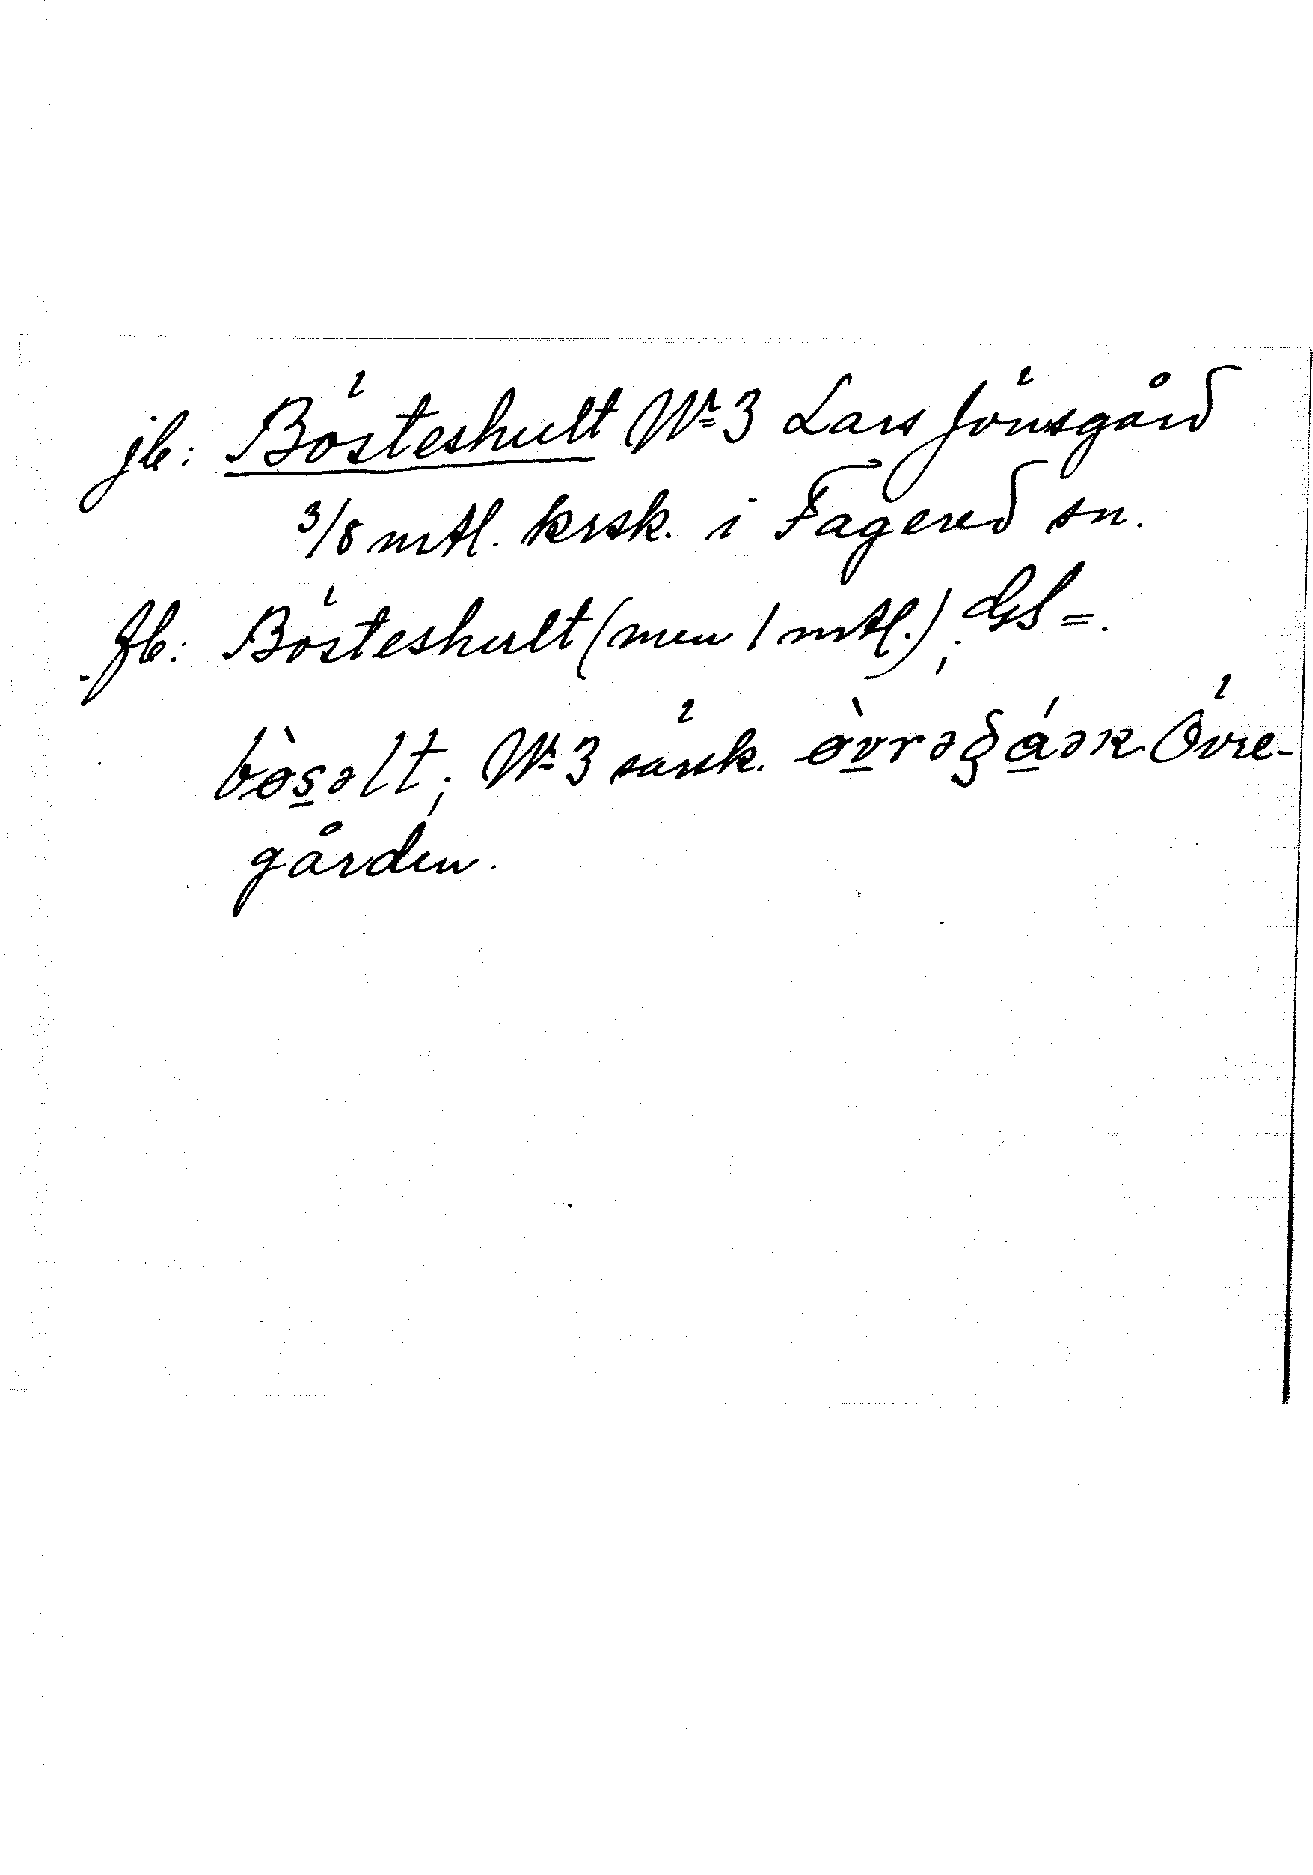 jb: Bösteshult Nr 3 Lars Jönsgård
3/8 mtl. krsk. i Fagered sn.
fb: Bösteshult (men 1 mtl.); GS =.
bø̀səlt; Nr 3 särsk. Övre-
gården.